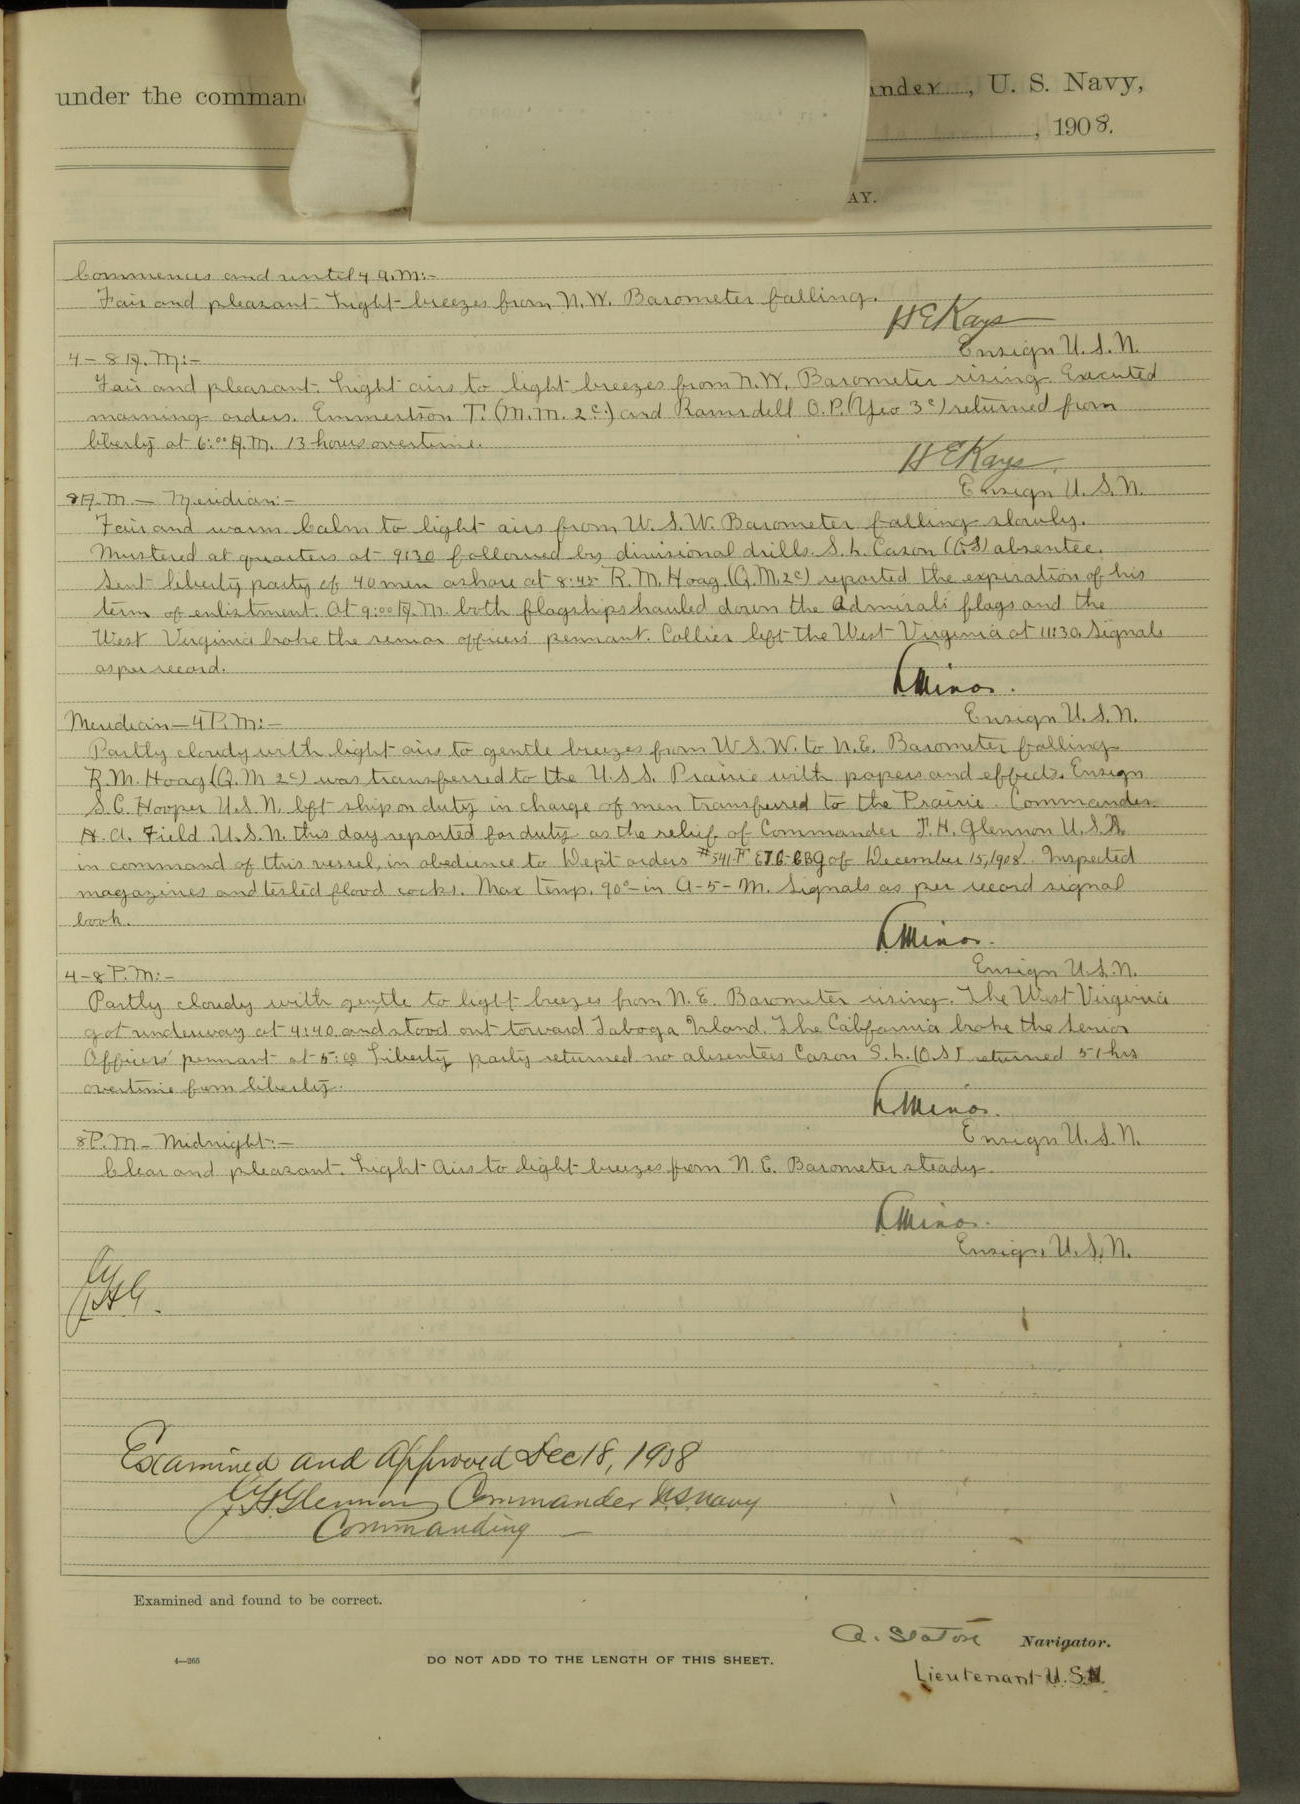 under the comman
ander, U. S. Navy,
, 1908.
AY.
Commences and until 4 a.m:-
Fair and pleasant. Light breezes from N.W. Barometer falling.
H E Kays
Ensign U.S.N.
4 - 8 A.M:-
Fair and pleasant. Light airs to light breezes from N.W. Barometer rising. Executed
morning orders. Emmertson T. (M.M. 2c) and Ramsdell O.P. (Yeo 3c) returned from
liberty at 6:00 A.M. 13 hours overtime.
H E Kays
Ensign U.S.N.
8 A.M. - Meridian:-
Fair and warm. Calm to light airs from W.S.W. Barometer falling slowly.
Mustered at quarters at 9:30 followed by divisional drills. S.L. Cason (O.S) absentee.
Sent liberty party of 40 men ashore at 8:45 R.M. Hoag (Q.M. 2c) reported the expiration of his
term of enlistment. At 9:00 A.M. both flagships hauled down the Admirals flags and the
West Virginia broke the senior officers' pennant. Collier left the West Virginia at 11:30. Signals
as per record.
Minor.
Ensign U.S.N.
Meridian - 4 P.M:-
Partly cloudy with light airs to gentle breezes from W.S.W. to N.E. Barometer falling
R.M. Hoag (Q.M 2c) was transferred to the U.S.S. Prairie with papers and effects. Ensign
S.C. Hooper U.S.N. left ship on duty in charge of men transferred to the Prairie. Commander
H.A. Field U.S.N. this day reported for duty as the relief of Commander J.H. Glennon U.S.N.
in command of this vessel, in obedience to Dep't orders of December 15, 1908. Inspected
magazines and tested flood cocks. Max temp. 90° in A-5-M. Signals as per record signal
book.
Minor.
Ensign U.S.N.
4 - 8 P.M:-
Partly cloudy with gentle to light breezes from N.E. Barometer rising. The West Virginia
got underway at 4:40 and stood out toward Taboga Island. The California broke the Senior
Officers' pennant at 5:00 Liberty party returned no absentees Cason S.L. (O.S) returned 51 hrs
overtime from liberty.
Minor.
Ensign U.S.N.
8 P.M - Midnight:-
Clear and pleasant. Light airs to light breezes from N.E. Barometer steady.
Minor.
Ensign, U.S.N.
JHG.
Examined and Approved Dec 18, 1908
JHGlennon Commander U.S. Navy
Commanding
Examined and found to be correct.
A. Staton Navigator.
4—265
DO NOT ADD TO THE LENGTH OF THIS SHEET.
Lieutenant U.S.N.